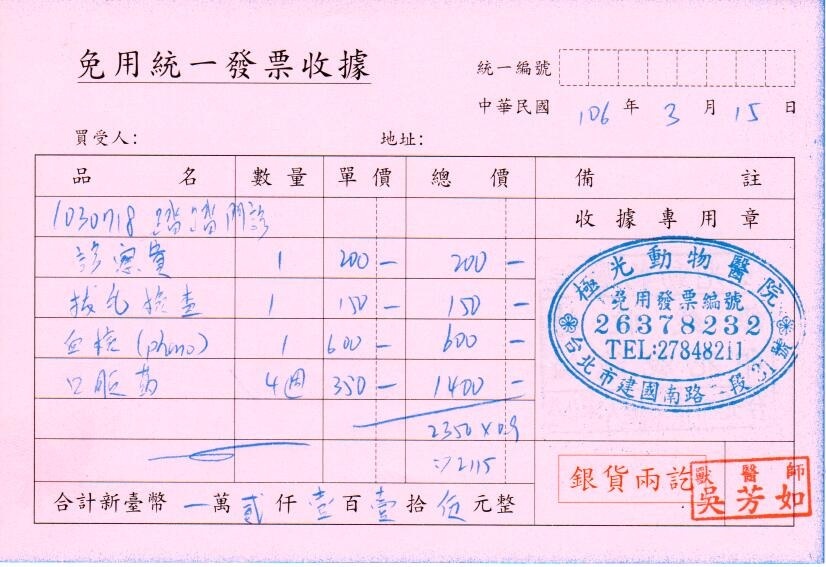 免用統一發票收據
統一編號
中華民國 106 年 3 月 15 日
買受人: 地址:
品名 數量 單價 總價 備註
1030718 踏踏門診 收據專用章
診察費 1 200- 200-
拔毛檢查 1 150- 150-
血檢(pheno) 1 600- 600-
口服藥 4週 350- 1400-
2350×0.9
⇒2115
極光動物醫院
免用發票編號
26378232
TEL:27848211
台北市建國南路二段31號
銀貨兩訖
獸醫師
吳芳如
合計新臺幣 一萬貳仟壹百壹拾伍元整